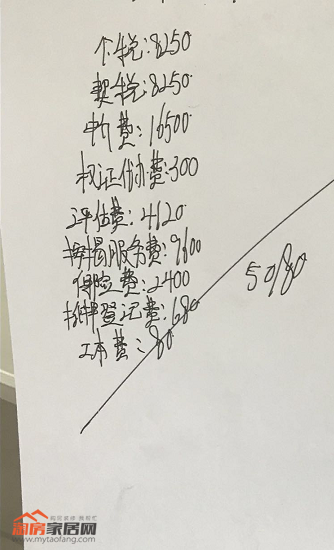 个税:8250
契税:8250
中介费:16500
权证代办费:300
评估费:4120
按揭服务费:9600
保险费:2400
抵押登记费:680
工本费:80
50180
淘房家居网
www.mytaofang.com